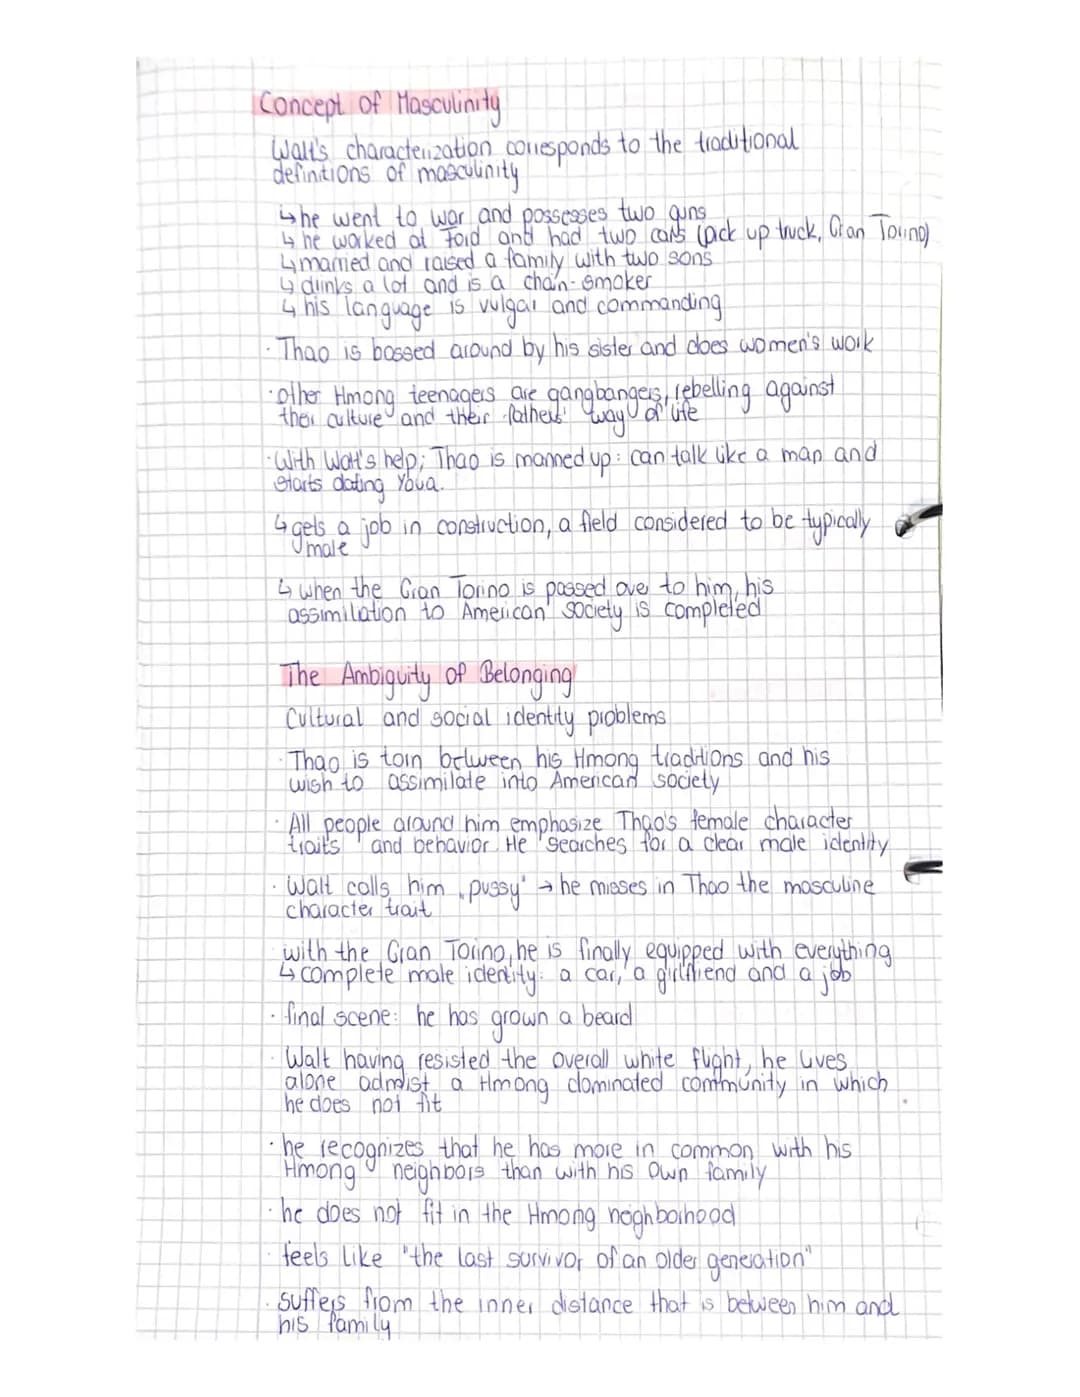 Concept of Masculinity
Walt's characterization corresponds to the traditional
definitions of masculinity
↳ he went to war and possesses two guns
↳ he worked at Ford and had two cars (pick up truck, Gran Torino)
↳ married and raised a family with two sons
↳ drinks a lot and is a chain-smoker
↳ his language is vulgar and commanding
· Thao is bossed around by his sister and does women's work
· other Hmong teenagers are gangbangers, rebelling against
their culture and their fathers' way of life
· With Walt's help, Thao is manned up: can talk like a man and
starts dating Youa.
↳ gets a job in construction, a field considered to be typically
male
↳ when the Gran Torino is passed over to him, his
assimilation to American society is completed
The Ambiguity of Belonging
Cultural and social identity problems
· Thao is torn between his Hmong traditions and his
wish to assimilate into American society
· All people around him emphasize Thao's female character
traits and behavior. He searches for a clear male identity
· Walt calls him „pussy" → he misses in Thao the masculine
character trait
with the Gran Torino, he is finally equipped with everything
↳ complete male identity: a car, a girlfriend and a job
· final scene: he has grown a beard
· Walt having resisted the overall white flight, he lives
alone admist a Hmong dominated community in which
he does not fit
· he recognizes that he has more in common with his
Hmong neighbors than with his own family
· he does not fit in the Hmong neighborhood
· feels like "the last survivor of an older generation"
· suffers from the inner distance that is between him and
his family